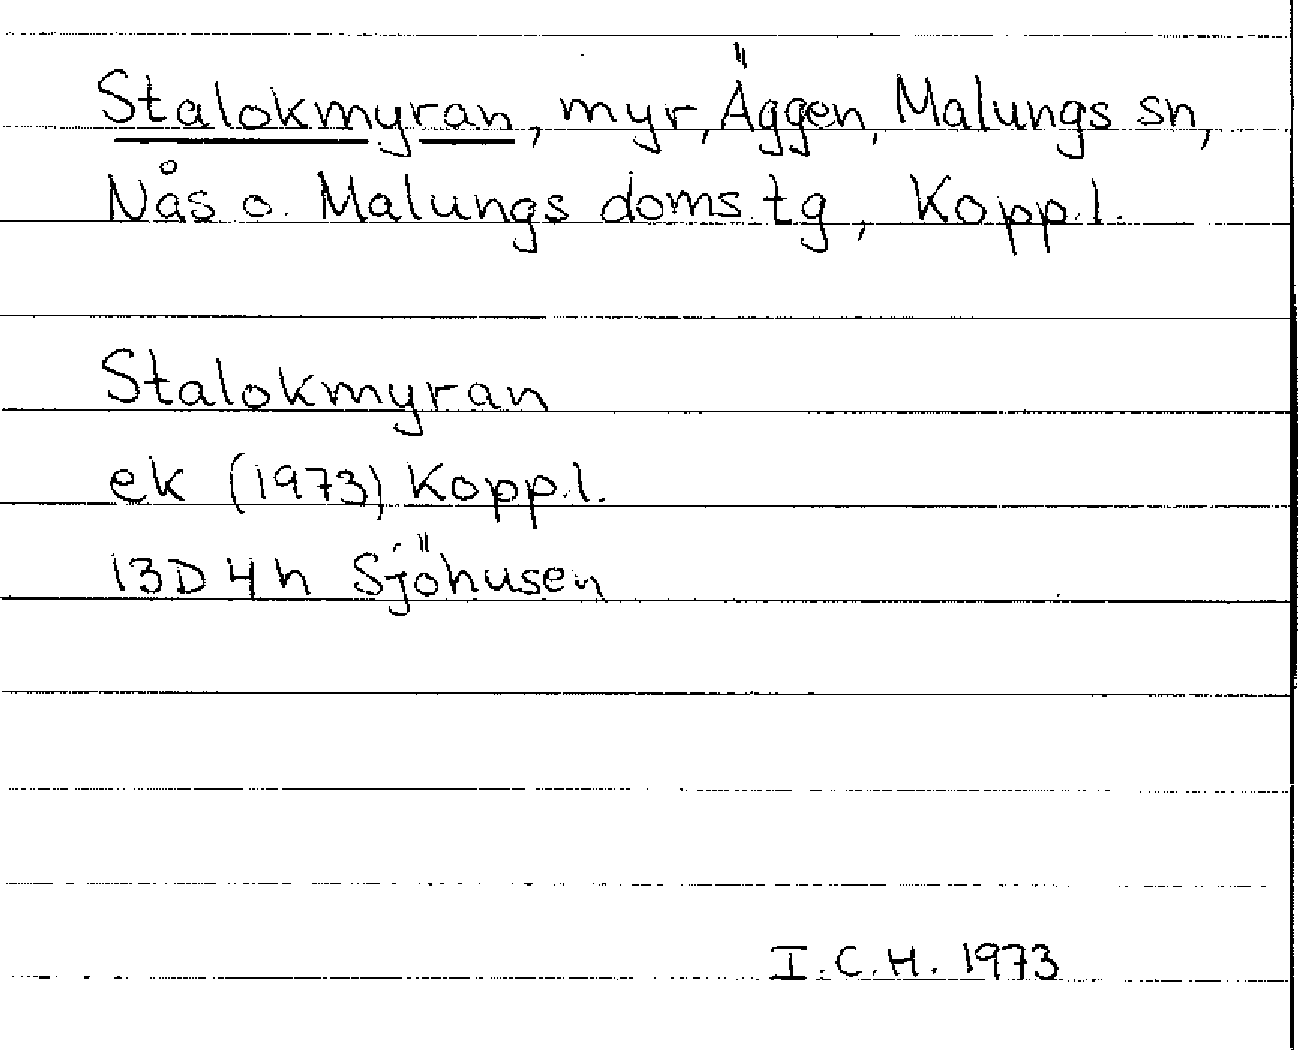 Stalokmyran, myr, Äggen, Malungs sn,
Nås o. Malungs doms.tg, Kopp.l.
Stalokmyran
ek (1973) Kopp.l.
13D 4h Sjöhusen
I.C.H. 1973